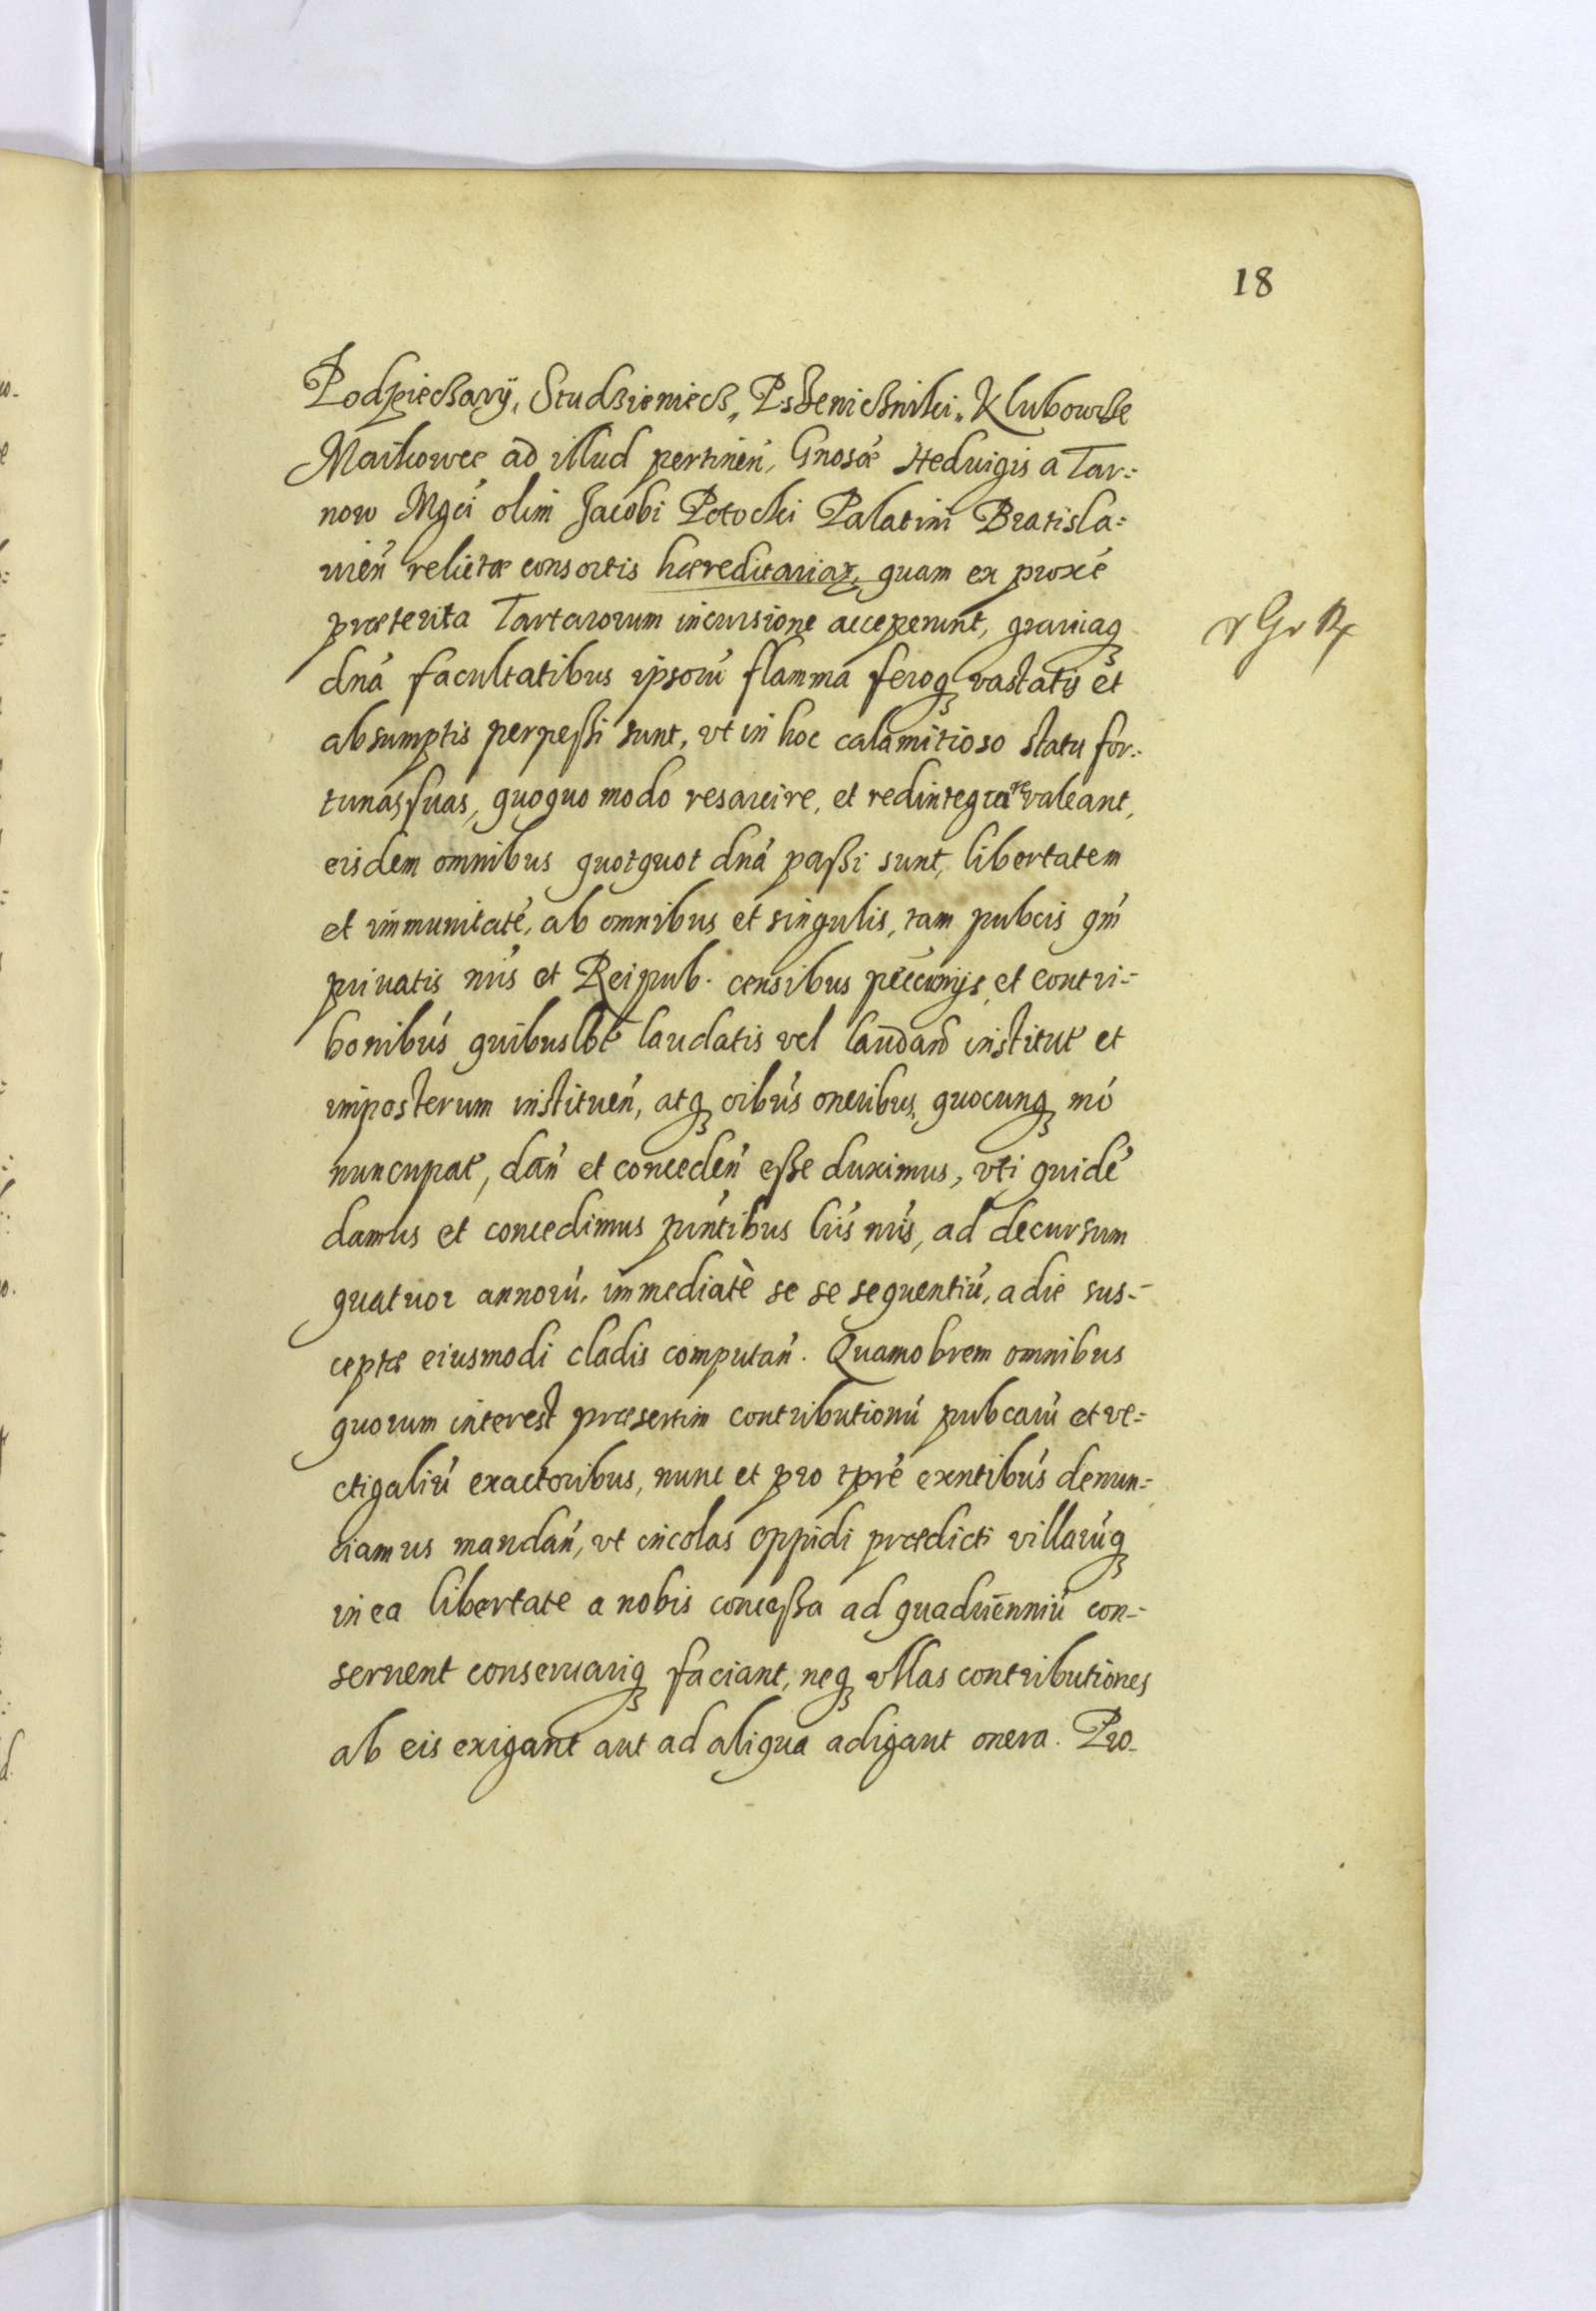 18
Podzieckary, Studzienieck, Psenicknihi, Klubowce
Maikowce ad illud pertineń, Gnosæ Heduigis a Tar=
now Mgci olim Jacobi Potocki Palatini Bratisla=
uień relictæ consortis hæreditariaꝝ, quam ex proxé
præterita Tartarorum incursione acceperunt, grauiaqꝫ
dná facultatibus ipsorú flamma feroqꝫ vastatis et
absumptis perpeßi sunt, vt in hoc calamitioso statu for=
tunas suas, quoquo modo resarcire, et redintegrare valeant,
eisdem omnibus quotquot dná paßi sunt, libertatem
et immunitaté, ab omnibus et singulis, tam pubcis qm̃
priuatis nr̃is et Reipub. censibus et contri=
bonibús quibuslbt laudatis vel laudań institut et
imposterum institueń, atqꝫ oibús oneribus, quocunqꝫ mó
nuncupat, dań et concedeń eße duximus, vti quidé
damus et concedimus pńtibus lr̃is nr̃is, ad decursum
quatuor annorú, immediatè se se sequentiú, a die sus=
ceptæ eiusmodi cladis computań. Quamobrem omnibus
quorum interest præsertim contributionú pubcarú et ve=
ctigaliú exactoribus, nunc et pro tpré exntibús denun=
ciamus mandań, vt incolas oppidi prædicti villarúqꝫ
in ea libertate a nobis conceßa ad quadrienniú con=
seruent conseruariqꝫ faciant, neqꝫ vllas contributiones
ab eis exigant aut ad aliqua adigant onera. Pro-